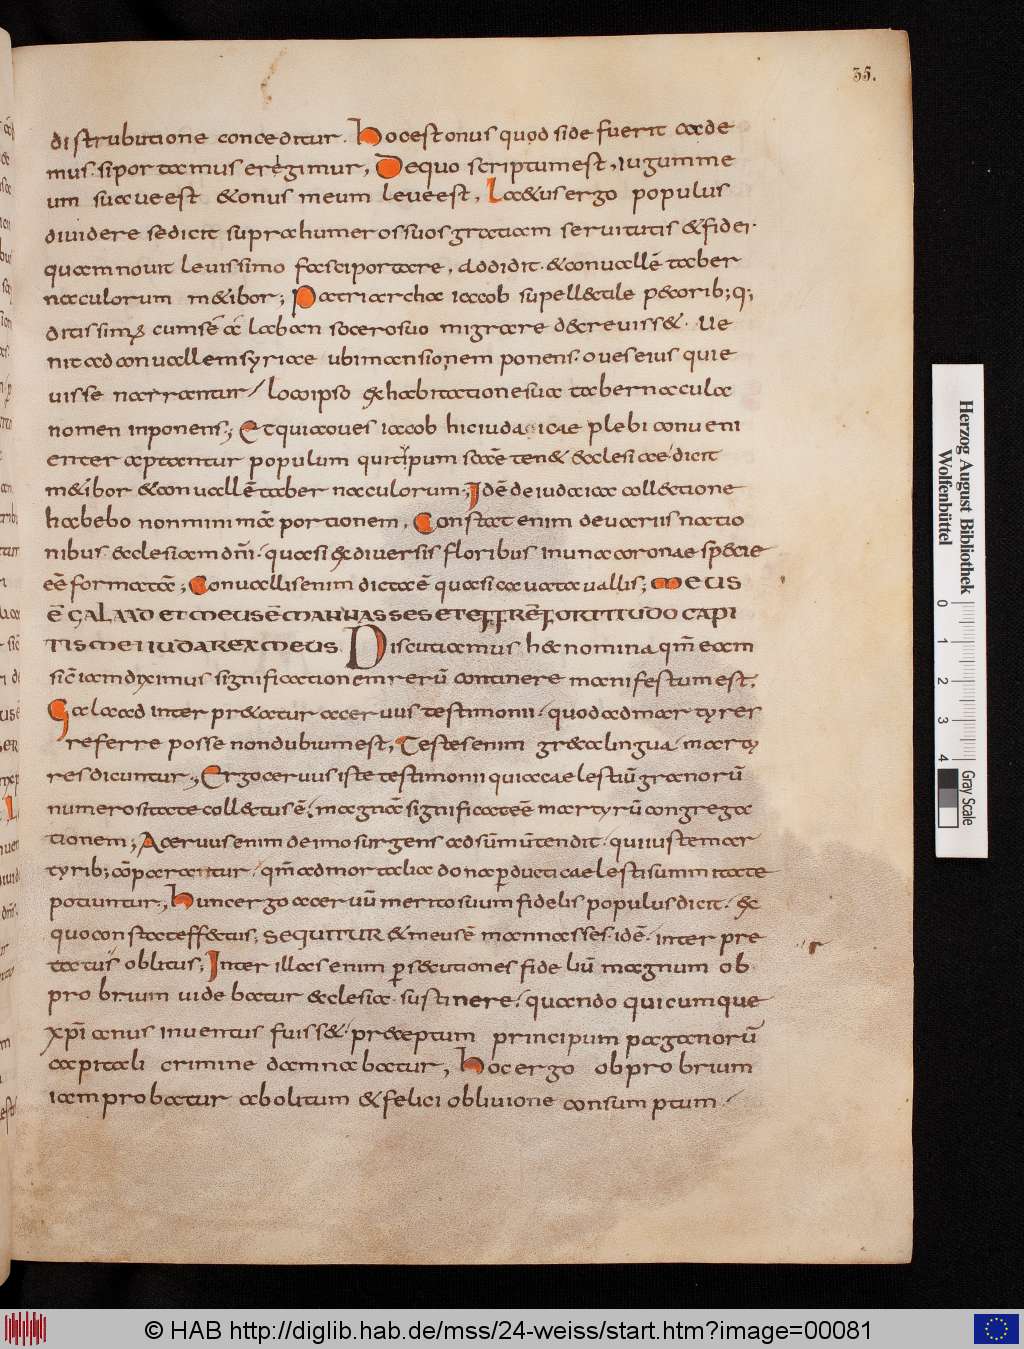 35.
distrubutione conceditur. hoc est onus quod side fuerit cade
mus. si portamus erégimur, De quo scriptum est, iugum me
um suave est & onus meum leve est, La&us ergo populus
dividere se dicit supra humeros suos gratiam servitutis & fidei.
quam novit levissimo fasci portare, Addidit. & convallē taber
naculorum m&ibor; Patriarcha iacob supell&tile p&orib; q;
ditissimus cum sē ā laban socero suo migrare d&reviss&. Ve
nit ad convallem syriae ubi mansionem ponens. oves eius quie
visse narrantur / loco ipso & habitationes suae tabernacula
nomen inponens; Et quia oves iacob hic iudaicae plebi conveni
enter aptantur populum quitipum sāctē ten& &clesiae dicit
m&ibor & convallē tabernaculorum; Idē de iudaica coll&tione
habebo non minimā portionem, Constat enim de variis natio
nibus &clesiam dñi. quasi & diversis floribus in una coronae sp&ie
eē formatā; Convallis enim dicta ē quasi cavata vallis; MEUS
Ē GALAAD ET MEUS Ē MANNASSES ET EFFRĒ FORTITUDO CAPI
TIS MEI IUDA REX MEUS. Discutiamus h&c nomina qm̄ eam
sīc iam diximus significationem rerū continere manifestum est.
Galaad interpr&atur acervus testimonii. quod ad martyres
referre posse non dubium est, Testes enim gr&a lingua martyr
res dicuntur, Ergo cervus iste testimonii quia caelestiū granorū
numerositate coll&tus ē. magnā significat eē martyrū congrega
tionem; Acervus enim de imo surgens ad sūmū tendit. qui iuste mar
tyrib; cōparantur. qm̄ ad mortalia dona perducti caelesti summitate
potiuntur, hunc ergo acervū merito suum fidelis populus dicit. &
quo constat eff&tus; SEQUITUR & meus ē mannasses. idē. interpre
tatus oblitus; Inter illas enim pers&utiones fideliū magnum ob
probrium videbatur &clesia sustinere. quando quicumque
xp̄ianus inventus fuiss&. pr&eptum principum paganorū
capitali crimine damnabatur, hoc ergo obprobrium
iam probatur abolitum & felici oblivione consumptum.
Herzog August Bibliothek
Wolfenbüttel
0 1 2 3 4
Gray Scale
© HAB http://diglib.hab.de/mss/24-weiss/start.htm?image=00081